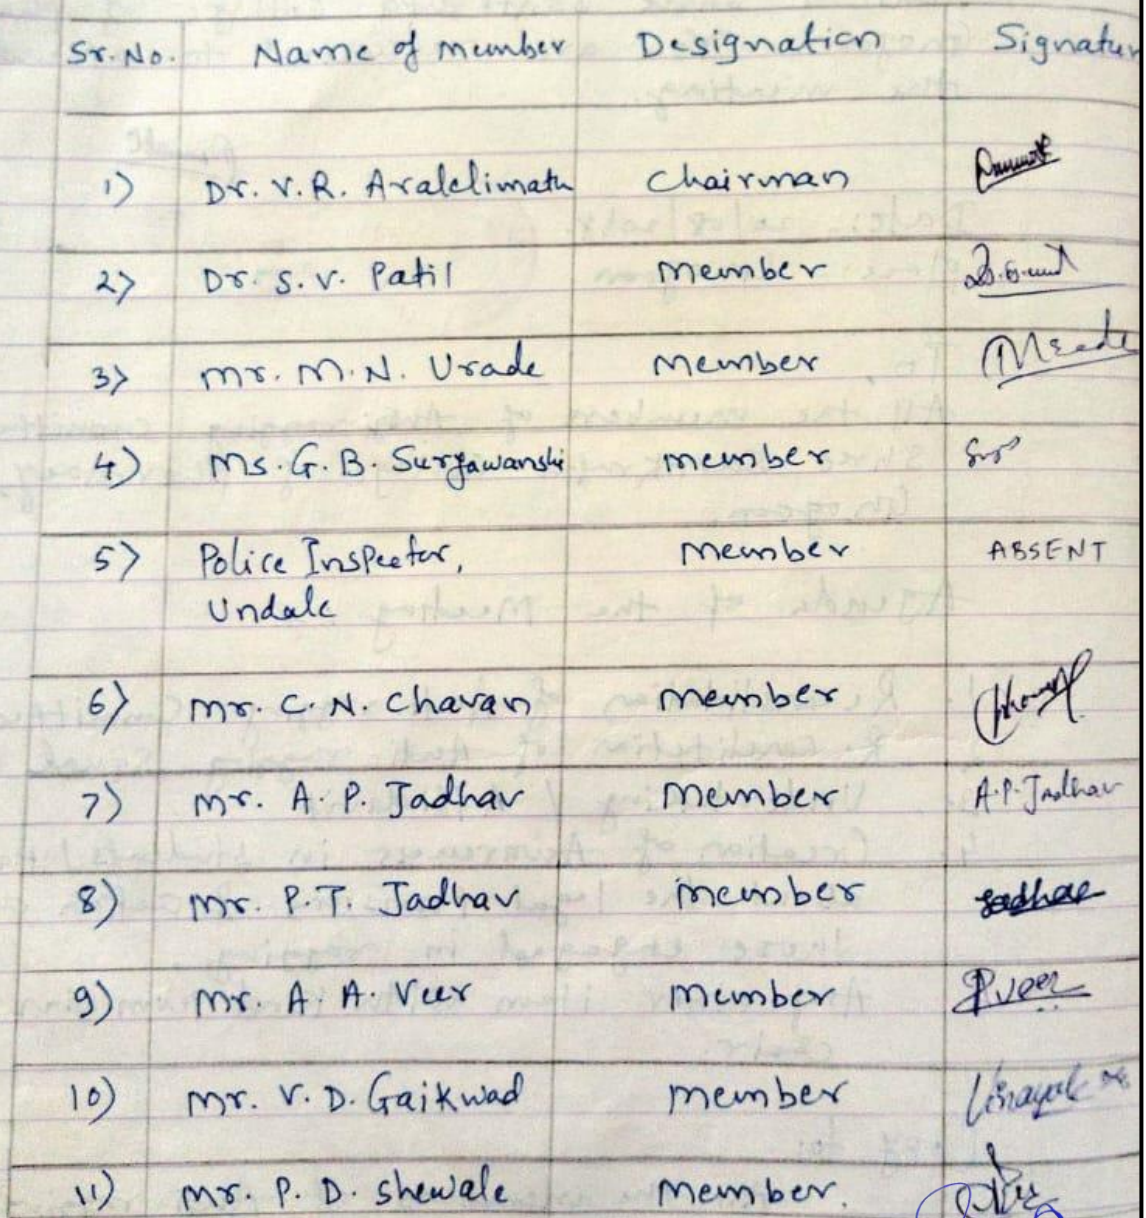 Sr. No. Name of member Designation Signatur
1) Dr. V. R. Aralelimath Chairman
2) Dr. S. V. Patil Member
3) Mr. M. N. Urade Member
4) Ms. G. B. Suryawanshi Member
5) Police Inspector, Member ABSENT
Undale
6) Mr. C. N. Chavan Member
7) Mr. A. P. Jadhav Member A.P. Jadhav
8) Mr. P. T. Jadhav Member Jadhav
9) Mr. A. A. Veer Member Veer
10) Mr. V. D. Gaikwad Member Vinayak
11) Mr. P. D. Shewale Member.